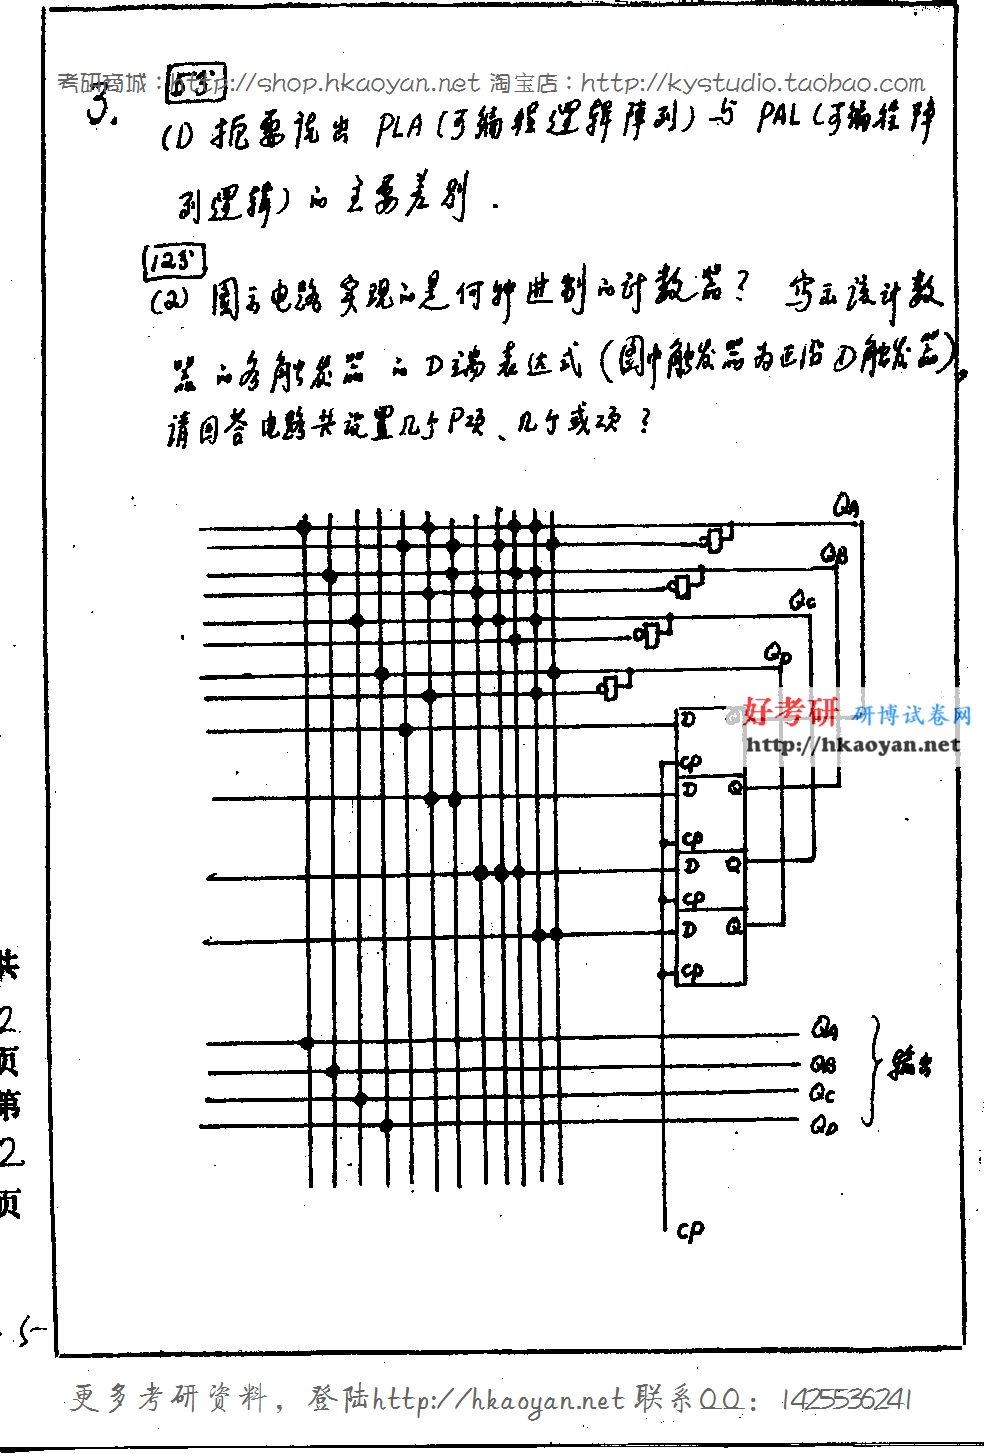 考研商城：http://shop.hkaoyan.net 淘宝店：http://kystudio.taobao.com
5分
3.
(1) 扼要说出 PLA(可编程逻辑阵列)与 PAL(可编程阵
列逻辑)的主要差别.
12分
(2) 图示电路实现的是何种进制的计数器? 写出该计数
器的各触发器的D端表达式(图中触发器为正沿D触发器),
请回答电路共设置几个P项、几个或项?
QA
QB
QC
QD
D Q
好考研 研博试卷网
http://hkaoyan.net
CP
D Q
CP
D Q
CP
D Q
CP
QA
QB
QC
QD
输出
CP
共2页第2页
5
更多考研资料，登陆http://hkaoyan.net 联系QQ：1425536241